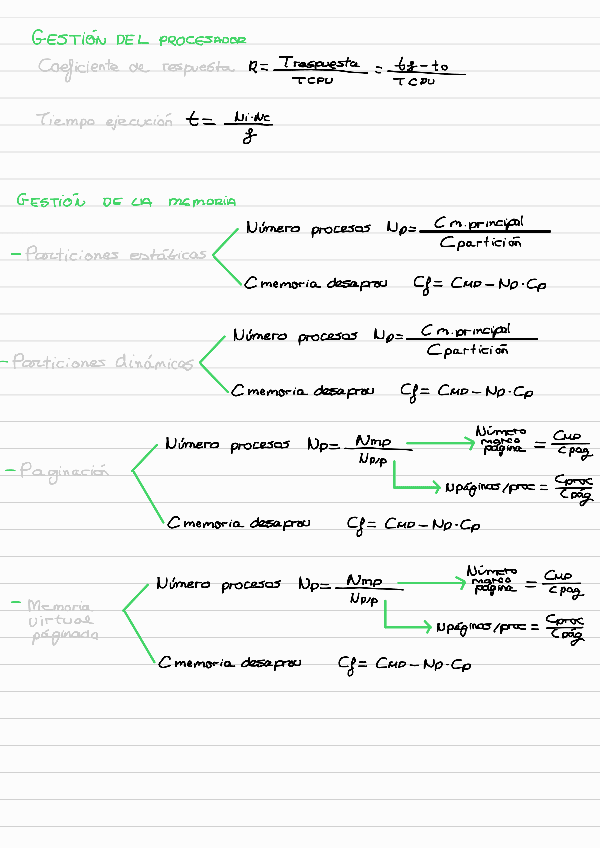 GESTIÓN DEL PROCESADOR
Coeficiente de respuesta R = Trespuesta / TCPU = tf - to / TCPU
Tiempo ejecución t = Ni·Nc / f
GESTIÓN DE LA MEMORIA
- Particiones estáticas
Número procesos Np = C m.principal / C partición
C memoria desaprov Cf = CMP - Np·Cp
- Particiones dinámicas
Número procesos Np = C m.principal / C partición
C memoria desaprov Cf = CMP - Np·Cp
- Paginación
Número procesos Np = Nmp / Np/p
Número marco página = CMP / Cpag
Npáginas/proc = Cproc / Cpág
C memoria desaprov Cf = CMP - Np·Cp
- Memoria virtual páginada
Número procesos Np = Nmp / Np/p
Número marco página = CMP / Cpag
Npáginas/proc = Cproc / Cpág
C memoria desaprov Cf = CMP - Np·Cp